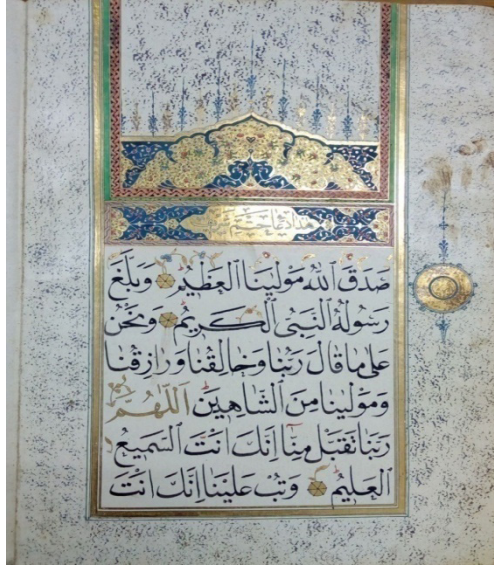 هذا دعاء ختم
صَدَقَ اللّٰهُ مَوْلٰينَا الْعَظِيمُ وَبَلَّغَ
رَسُولُهُ النَّبِيُّ الْكَرِيمُ وَنَحْنُ
عَلٰى مَا قَالَ رَبُّنَا وَخَالِقُنَا وَرَازِقُنَا
وَمَوْلٰينَا مِنَ الشَّاهِدِينَ اَللّٰهُمَّ
رَبَّنَا تَقَبَّلْ مِنَّا اِنَّكَ اَنْتَ السَّمِيعُ
الْعَلِيمُ وَتُبْ عَلَيْنَا اِنَّكَ اَنْتَ